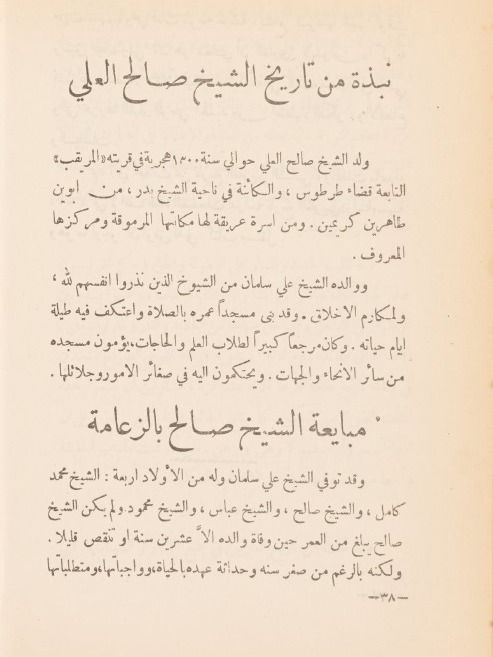 نبذة من تاريخ الشيخ صالح العلي
ولد الشيخ صالح العلي حوالي سنة ١٣٠٠ هجرية في قريته «المريقب»
التابعة قضاء طرطوس ، والكائنة في ناحية الشيخ بدر ، من ابوين
طاهرين كريمين . ومن اسرة عريقة لها مكانتها المرموقة ومركزها
المعروف .
ووالده الشيخ علي سلمان من الشيوخ الذين نذروا انفسهم لله ،
ولمكارم الاخلاق . وقد بنى مسجداً عمره بالصلاة واعتكف فيه طيلة
ايام حياته . وكان مرجعاً كبيراً لطلاب العلم والحاجات، يؤمون مسجده
من سائر الانحاء والجهات . ويحتكمون اليه في صغائر الامور وجلائلها .
مبايعة الشيخ صالح بالزعامة
وقد توفي الشيخ علي سلمان وله من الأولاد اربعة : الشيخ محمد
كامل ، والشيخ صالح ، والشيخ عباس ، والشيخ محمود . ولم يكن الشيخ
صالح يبلغ من العمر حين وفاة والده الاَّ عشرين سنة او تنقص قليلا .
ولكنه بالرغم من صغر سنه وحداثة عهده بالحياة، وواجباتها، ومتطلباتها
—٣٨—